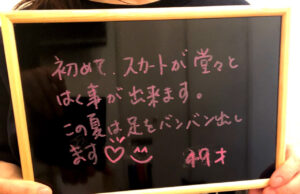 初めて、スカートが堂々と
はく事が出来ます。
この夏は足をバンバン出し
ます♡
49才